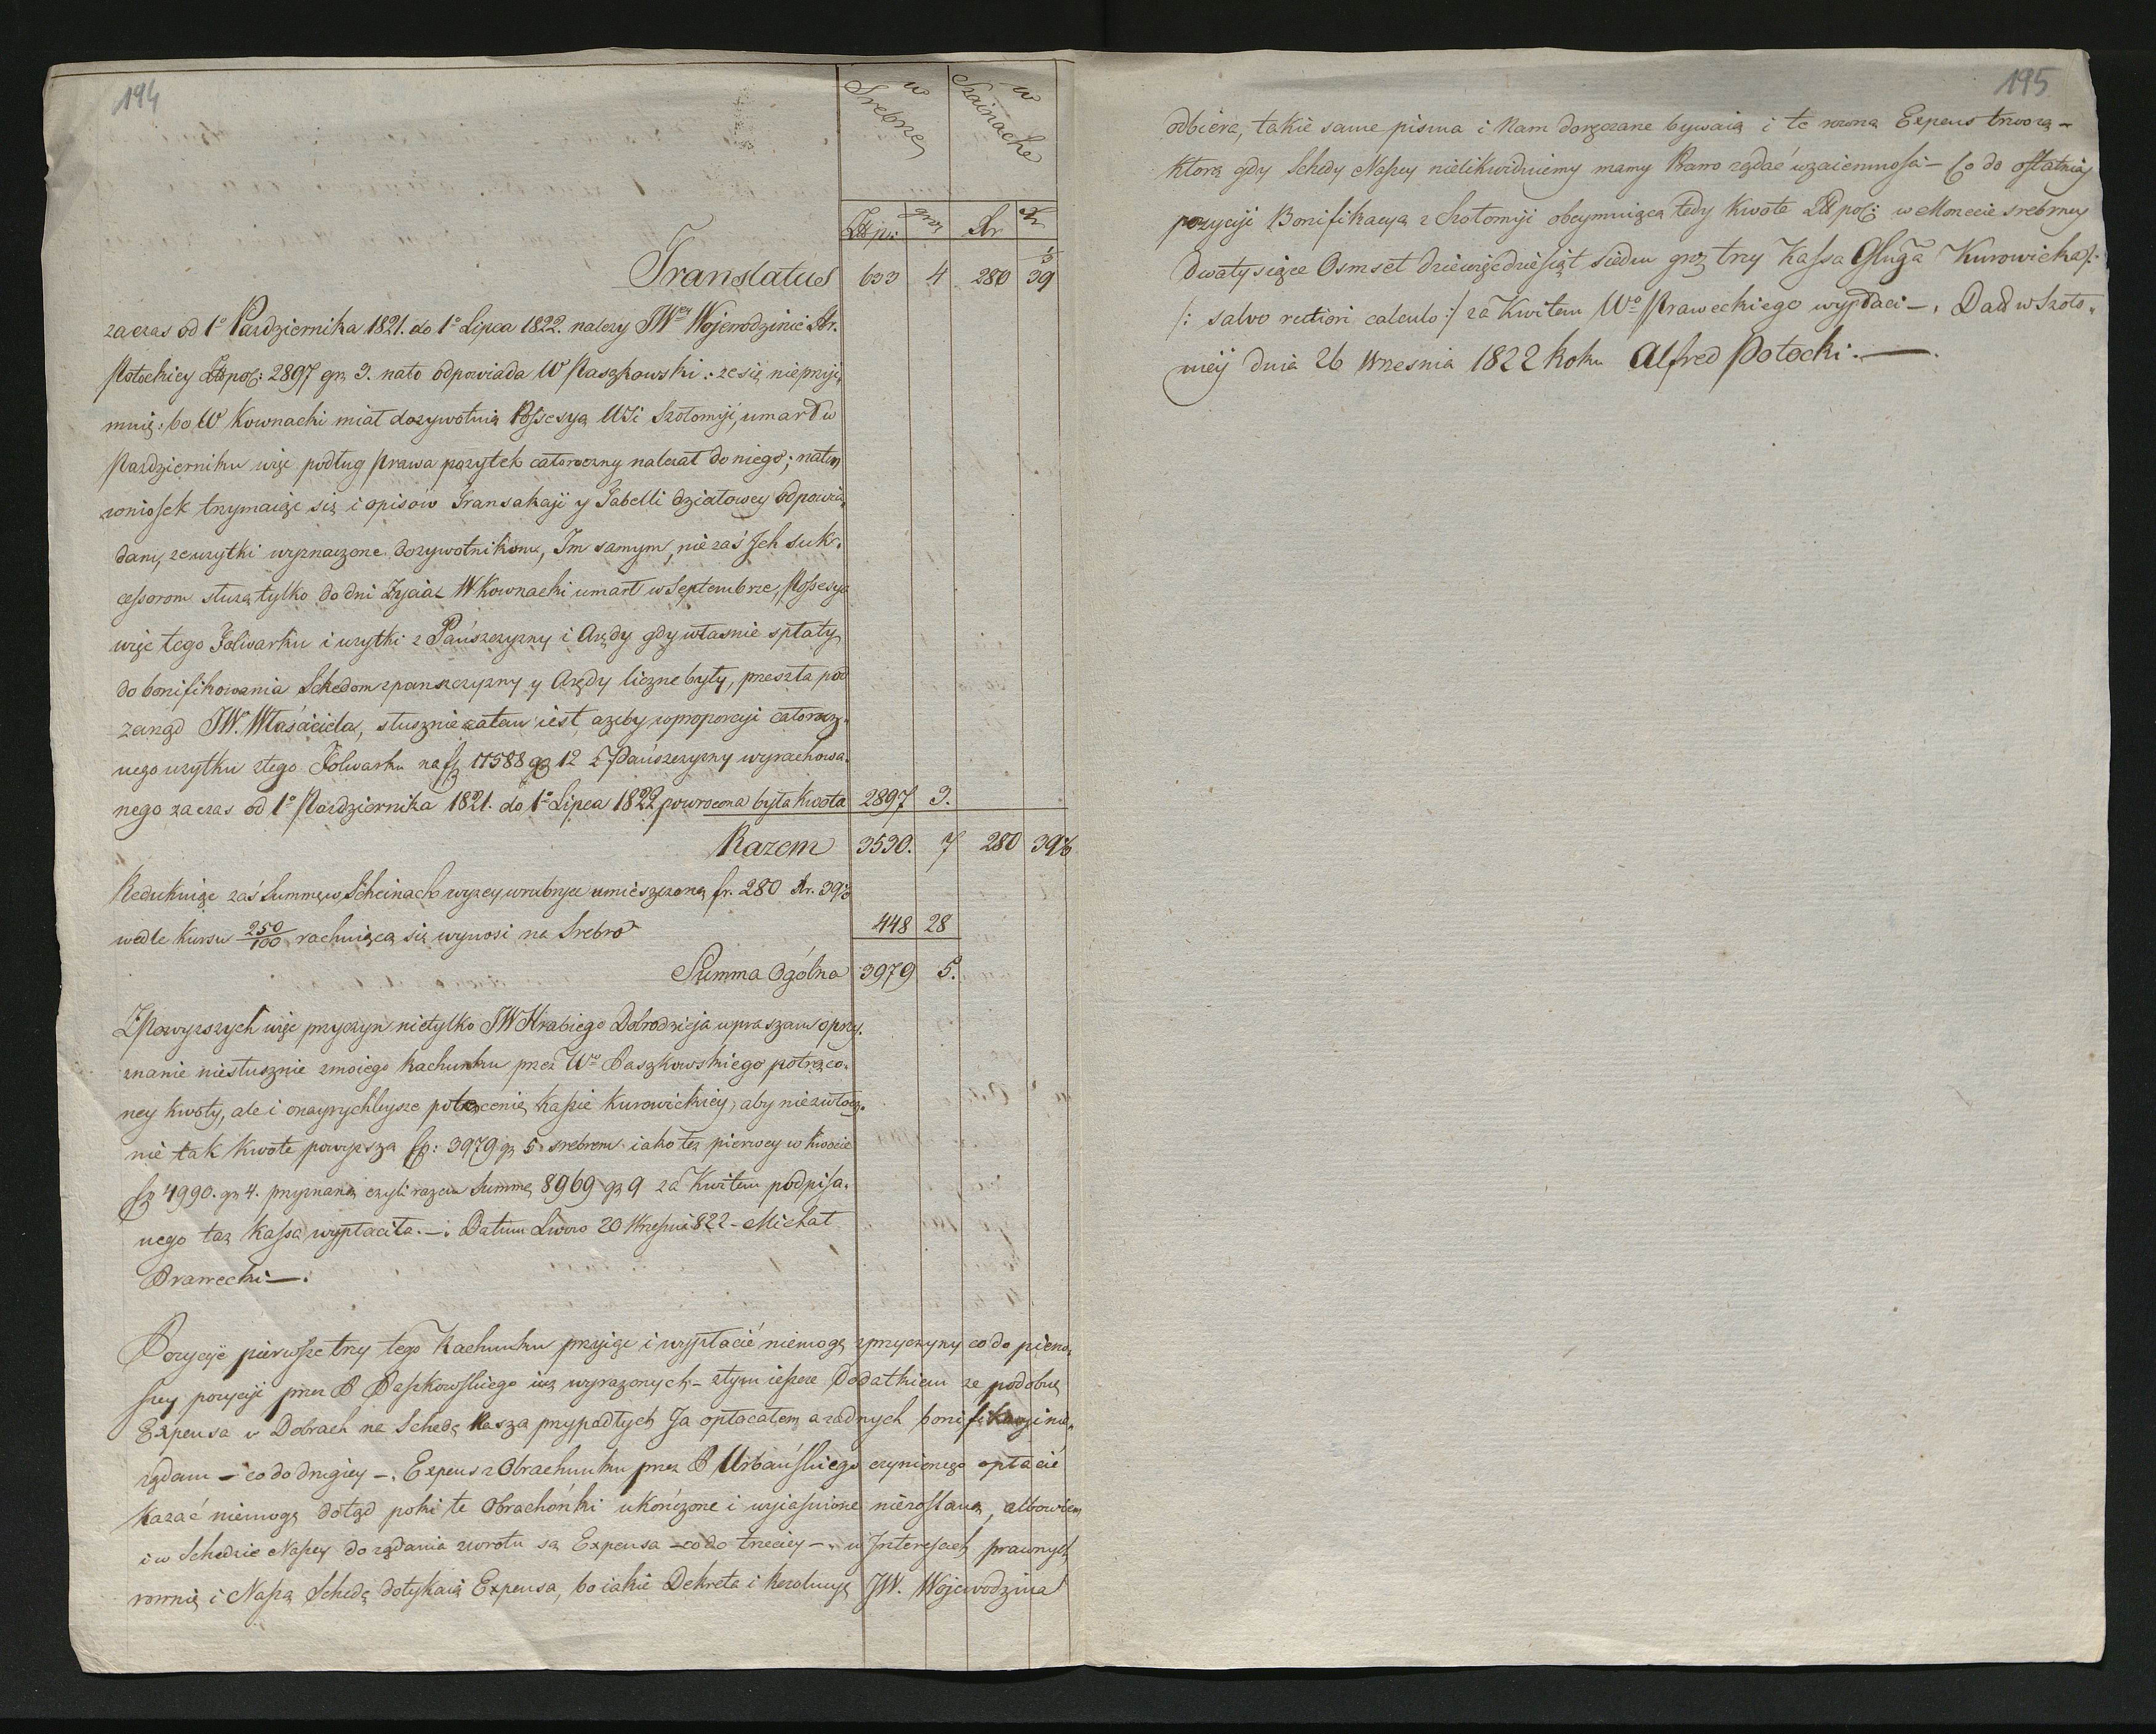 194
w Srebrze
w Szainache
Złp:
grosz
Xr
Translatus 633 4 280 39 1/5
za czas od 1º Pazdziernika 1821. do 1º Lipca 1822. nalezy JWey Wojewodzinie Hr.
Potockiey Złpol: 2897 gr 3. nato odpowiada W Paszkowski: że się nieprzyi„
muię: bo W Kownacki miał dozywotnią Possesyą Wsi Szołomyi, umarł w
Pazdzierniku więc podług Prawa pozytek całoroczny należał do niego; na ten
wniosek trzymaiąc się i opisow Transakcyi y Tabelli działowey odpowia„
dam, ze uzytki wyznaczone dozywotnikom, Im samym, nie zaś Jch suk„
cessorom służą tylko do dni Zycia W Kownacki umarł w Septembrze, Possesya
więc tego Folwarku i uzytki z Pańszczyzny i Arędy gdy własnie spłaty
do bonifikowania Schedom z panszczyzny y Arędy liczne były, preszła pod
zarząd JW. Właściciela, słusznie zatem iest, azeby w proporcyi całorocz„
nego uzytku z tego Folwarku na fp 11588 gr 12 z Pańszczyzny wyrachowa„
nego za czas od 1º Pazdziernika 1821. do 1º Lipca 1822 powrocona była Kwota 2897 3.
Razem 3530. 7 280 39 1/5
Redukuiąc zaś Summę w Scheinach wyzey w rubryce umieszczoną fr. 280 Xr. 39 1/5
wedle Kursu 250/100 rachuiącą się wynosi na Srebro 448 28
Summa Ogólna 3979 5.
Z Powyzszych więc przyczyn nietylko JW Hrabiego Dobrodzieja upraszam o przy„
znanie niesłusznie z moiego Rachunku przez Wgo Paszkowskiego potrąco„
ney Kwoty, ale i o nayrychleysze polecenie Kassie Kurowickiey, aby niezwłocz„
nie tak Kwotę powyzszą fp: 3979 gr 5 srebrem iako tez pierwey w kwocie
fp 4990. gr 4. przyznaną czyli razem Summę 8969 gr 9 za Kwitem podpisa„
nego taż Kassa wypłaciła. —. Datum Lwow 20 Wrzesnia 822 — Michał
Prawecki —.
Pozycyie pierwsze trzy tego Rachunku przyiąc i wypłacić niemogę z przyczyny co do pierw„
szey pozycyi przez P Paszkowskiego iuz wyrazonych — z tym ieszcze Dodatkiem ze podobne
Expensa w Dobrach na Schedę Naszą przypadłych Ja opłacałem a zadnych bonifikacyi nie„
ządam — co do drugiey —. Expens z Obrachunku przez P Urbańskiego czynionego opłacić
Kazać niemogę dotąd poki te Obrachońki ukończone i wyiasnione niezostaną, albowiem
i w Schedzie Naszey do ządania zwrotu są Expensa — co do trzeciey —. w Jnteresach prawnych
rownie i Naszą Schedę dotykaią Expensa, bo iakie Dekreta i Rezolucye JW. Wojewodzina
195
odbiera, takie same pisma i Nam doręczane bywaią i te rowną Expens tworzą —
ktorą gdy Schedy Naszey nielikwiduiemy mamy Prawo ządać wzaiemnosci — Co do ostatniey
pozycyi Bonifikacyą z Szołomyi obeymuiącą tedy Kwotę Złpol: w Monecie srebrney
Dwatysiące Osmset dziewięcdziesiąt siedm grosz trzy Kassa Kluza Kurowicka
/: salvo rectiori calculo :/ za Kwitem Wo Praweckiego wypłaci —. Dat w Szoło„
myi dnia 26 Wrzesnia 1822 Roku Alfred Potocki. —.